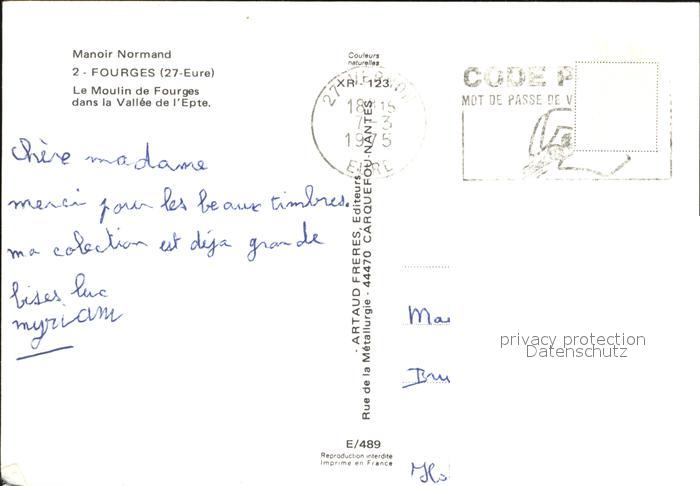 Manoir Normand
2 - FOURGES (27-Eure)
Le Moulin de Fourges
dans la Vallée de l'Epte.
Chère madame
merci pour les beaux timbres.
ma colection est déja grande
bises luc
myriam
Couleurs
naturelles
XR - 123
27
18 H 15
7 - 3
1975
EURE
CODE P
MOT DE PASSE DE V
- ARTAUD FRERES, Editeurs
Rue de la Métallurgie - 44470 CARQUEFOU-NANTES
E/489
Reproduction interdite
Imprimé en France
privacy protection
Datenschutz